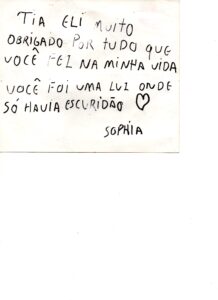 TIA ELI MUITO
OBRIGADO POR TUDO QUE
VOCÊ FEZ NA MINHA VIDA
VOCÊ FOI UMA LUZ ONDE
SÓ HAVIA ESCURIDÃO ♡
SOPHIA